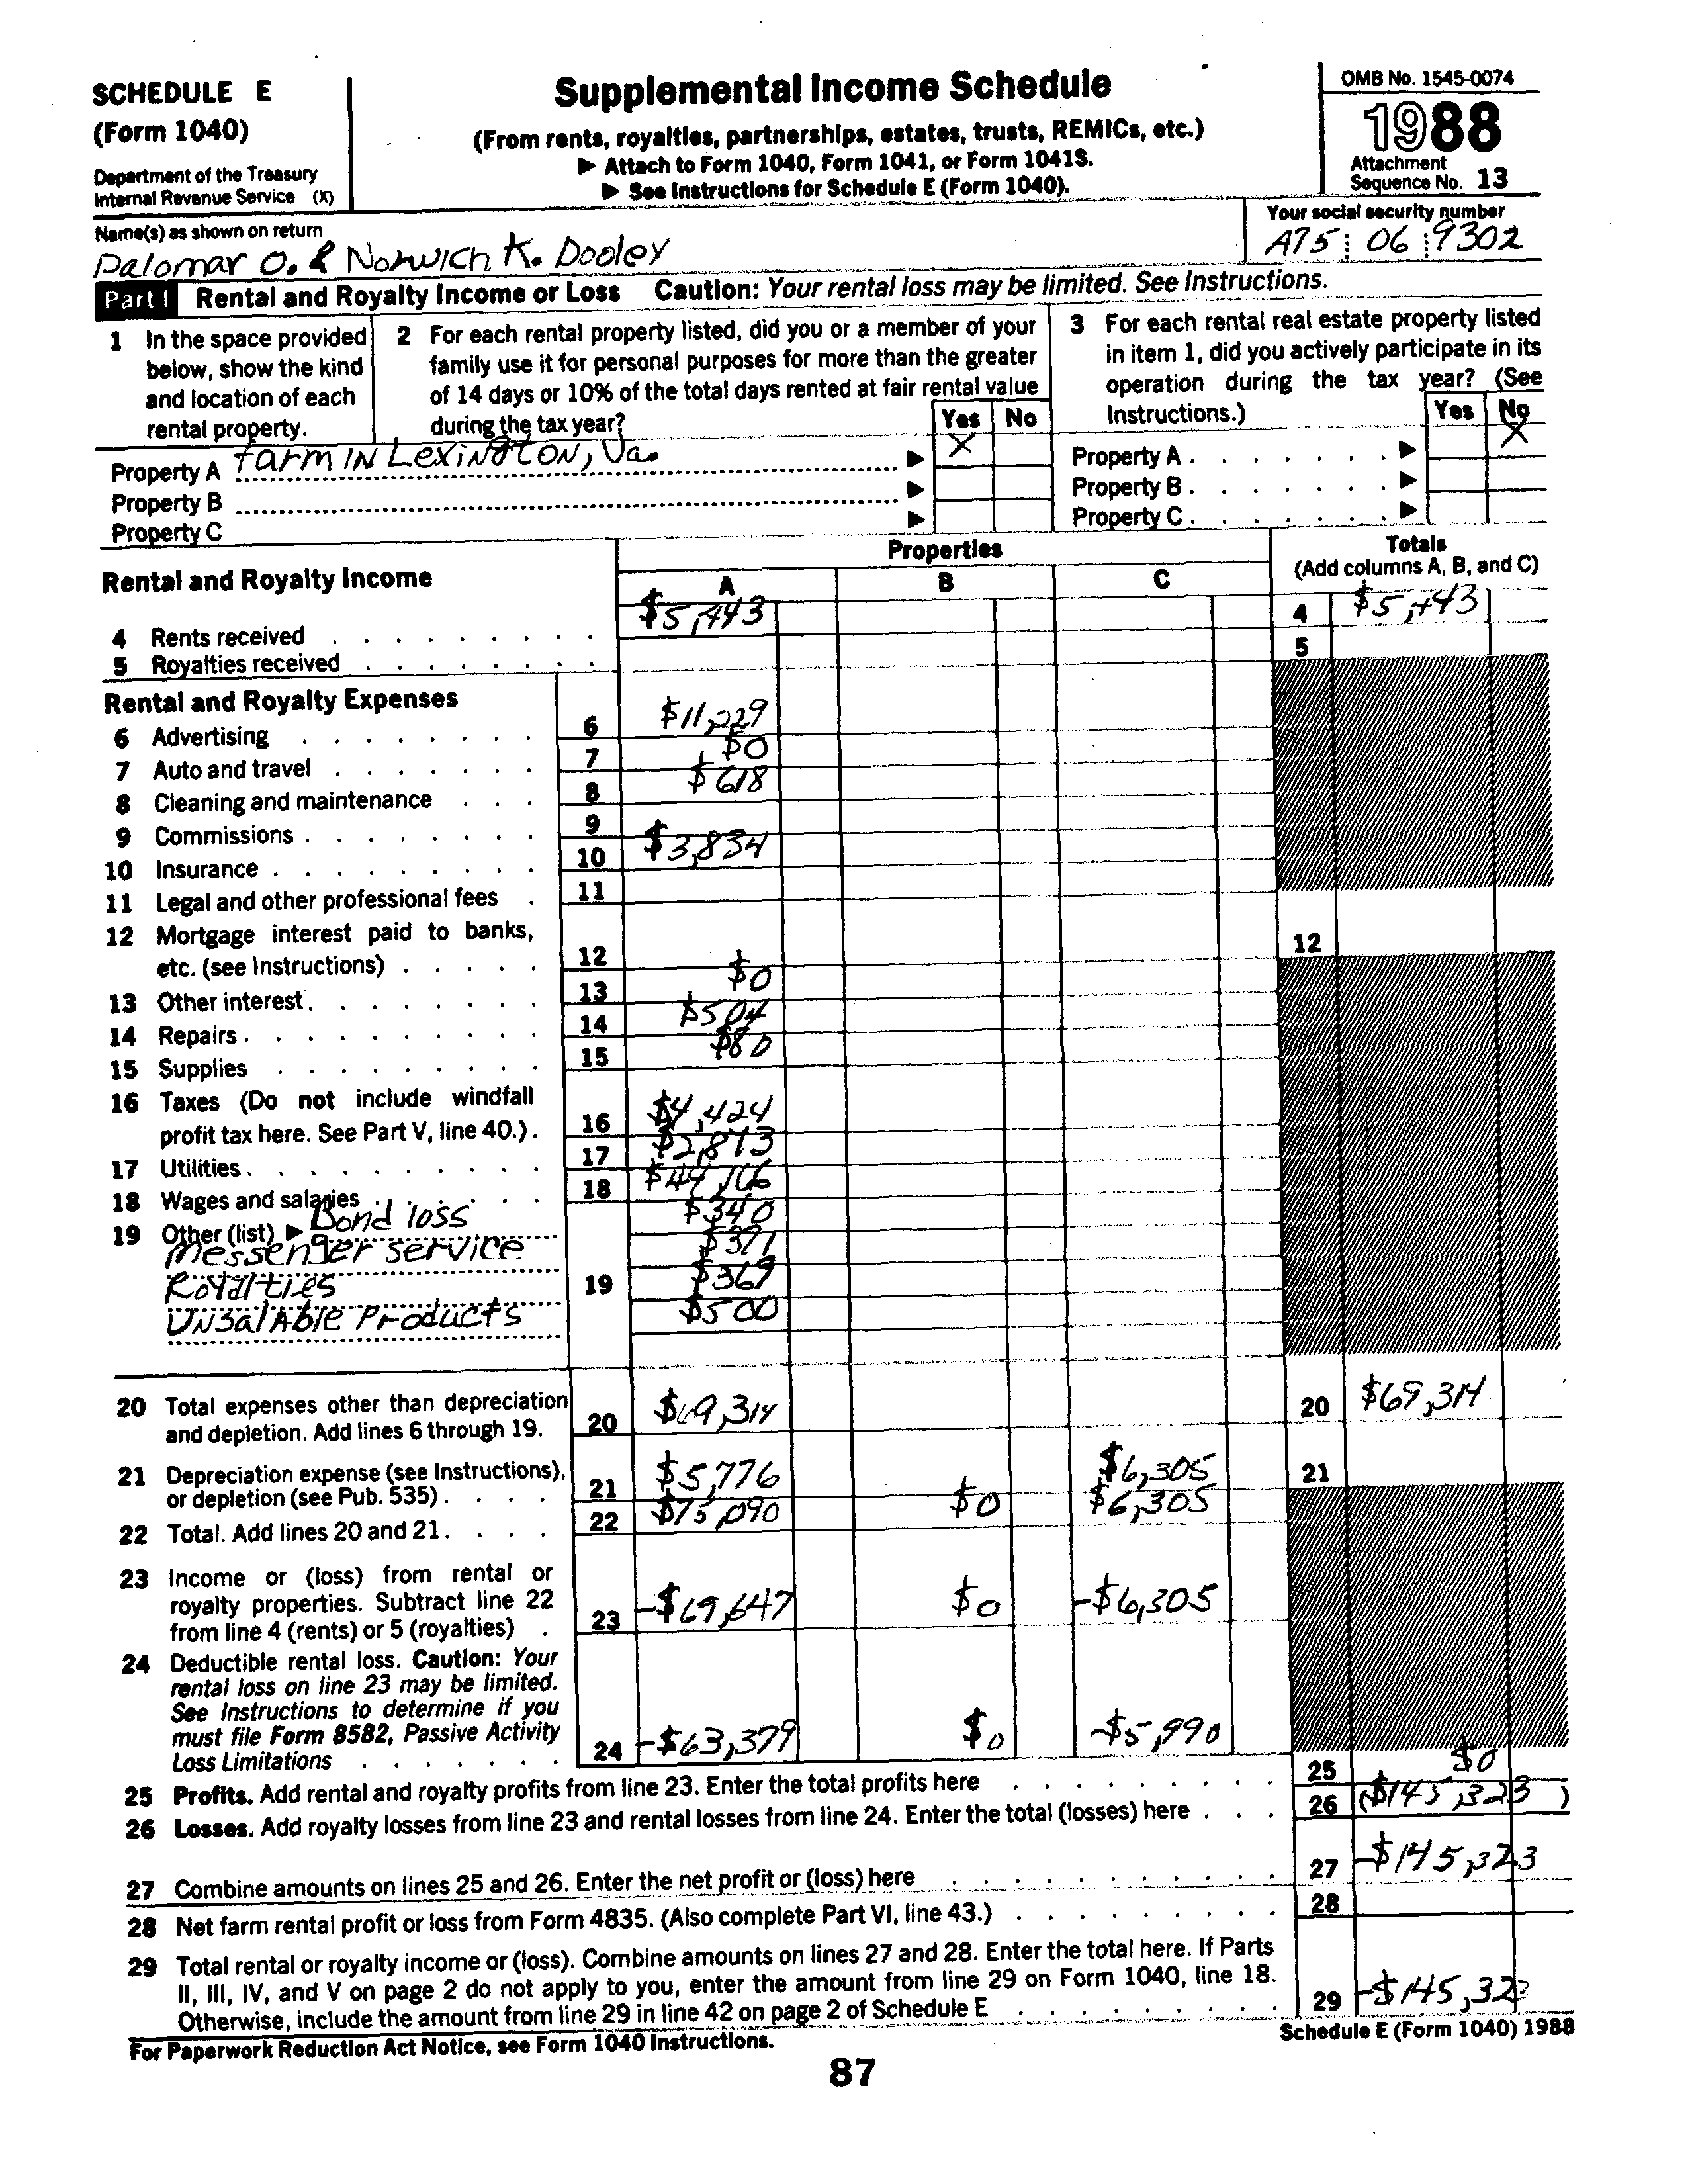 SCHEDULE E
(Form 1040)
Department of the Treasury
Internal Revenue Service (X)
Supplemental Income Schedule
(From rents, royalties, partnerships, estates, trusts, REMICs, etc.)
▶ Attach to Form 1040, Form 1041, or Form 1041S.
▶ See Instructions for Schedule E (Form 1040).
OMB No. 1545-0074
1988
Attachment
Sequence No. 13
Name(s) as shown on return
Palomar O. & Norwich K. Dooley
Your social security number
A75 06 9302
Part I Rental and Royalty Income or Loss Caution: Your rental loss may be limited. See Instructions.
1 In the space provided
below, show the kind
and location of each
rental property.
2 For each rental property listed, did you or a member of your
family use it for personal purposes for more than the greater
of 14 days or 10% of the total days rented at fair rental value
during the tax year?
Yes No
3 For each rental real estate property listed
in item 1, did you actively participate in its
operation during the tax year? (See
Instructions.)
Yes No
Property A farm IN LexingtON, Va. ▶ X
Property B ▶
Property C ▶
Property A . . . . . . . ▶ X
Property B . . . . . . . ▶
Property C . . . . . . . ▶
Rental and Royalty Income
Properties
A B C
Totals
(Add columns A, B, and C)
4 Rents received $5,443 4 $5,443
5 Royalties received 5
Rental and Royalty Expenses
6 Advertising 6 $11,229
7 Auto and travel 7 $0
8 Cleaning and maintenance 8 $618
9 Commissions 9
10 Insurance 10 $3,834
11 Legal and other professional fees 11
12 Mortgage interest paid to banks,
etc. (see Instructions) 12 12
13 Other interest 13 $0
14 Repairs 14 $504
15 Supplies 15 $80
16 Taxes (Do not include windfall
profit tax here. See Part V, line 40.) 16 $4,424
17 Utilities 17 $2,873
18 Wages and salaries 18 $44,166
19 Other (list) ▶ Bond loss $340
messenger service $371
Royalties 19 $369
UNSalAble Products $500
20 Total expenses other than depreciation
and depletion. Add lines 6 through 19. 20 $69,314 20 $69,314
21 Depreciation expense (see Instructions),
or depletion (see Pub. 535) 21 $5,776 $6,305 21
22 Total. Add lines 20 and 21 22 $75,090 $0 $6,305
23 Income or (loss) from rental or
royalty properties. Subtract line 22
from line 4 (rents) or 5 (royalties) 23 -$69,647 $0 -$6,305
24 Deductible rental loss. Caution: Your
rental loss on line 23 may be limited.
See Instructions to determine if you
must file Form 8582, Passive Activity
Loss Limitations 24 -$63,379 $0 -$5,990
25 Profits. Add rental and royalty profits from line 23. Enter the total profits here 25 $0
26 Losses. Add royalty losses from line 23 and rental losses from line 24. Enter the total (losses) here 26 ($145,323)
27 Combine amounts on lines 25 and 26. Enter the net profit or (loss) here 27 -$145,323
28 Net farm rental profit or loss from Form 4835. (Also complete Part VI, line 43.) 28
29 Total rental or royalty income or (loss). Combine amounts on lines 27 and 28. Enter the total here. If Parts
II, III, IV, and V on page 2 do not apply to you, enter the amount from line 29 on Form 1040, line 18.
Otherwise, include the amount from line 29 in line 42 on page 2 of Schedule E 29 -$145,323
For Paperwork Reduction Act Notice, see Form 1040 Instructions.
Schedule E (Form 1040) 1988
87